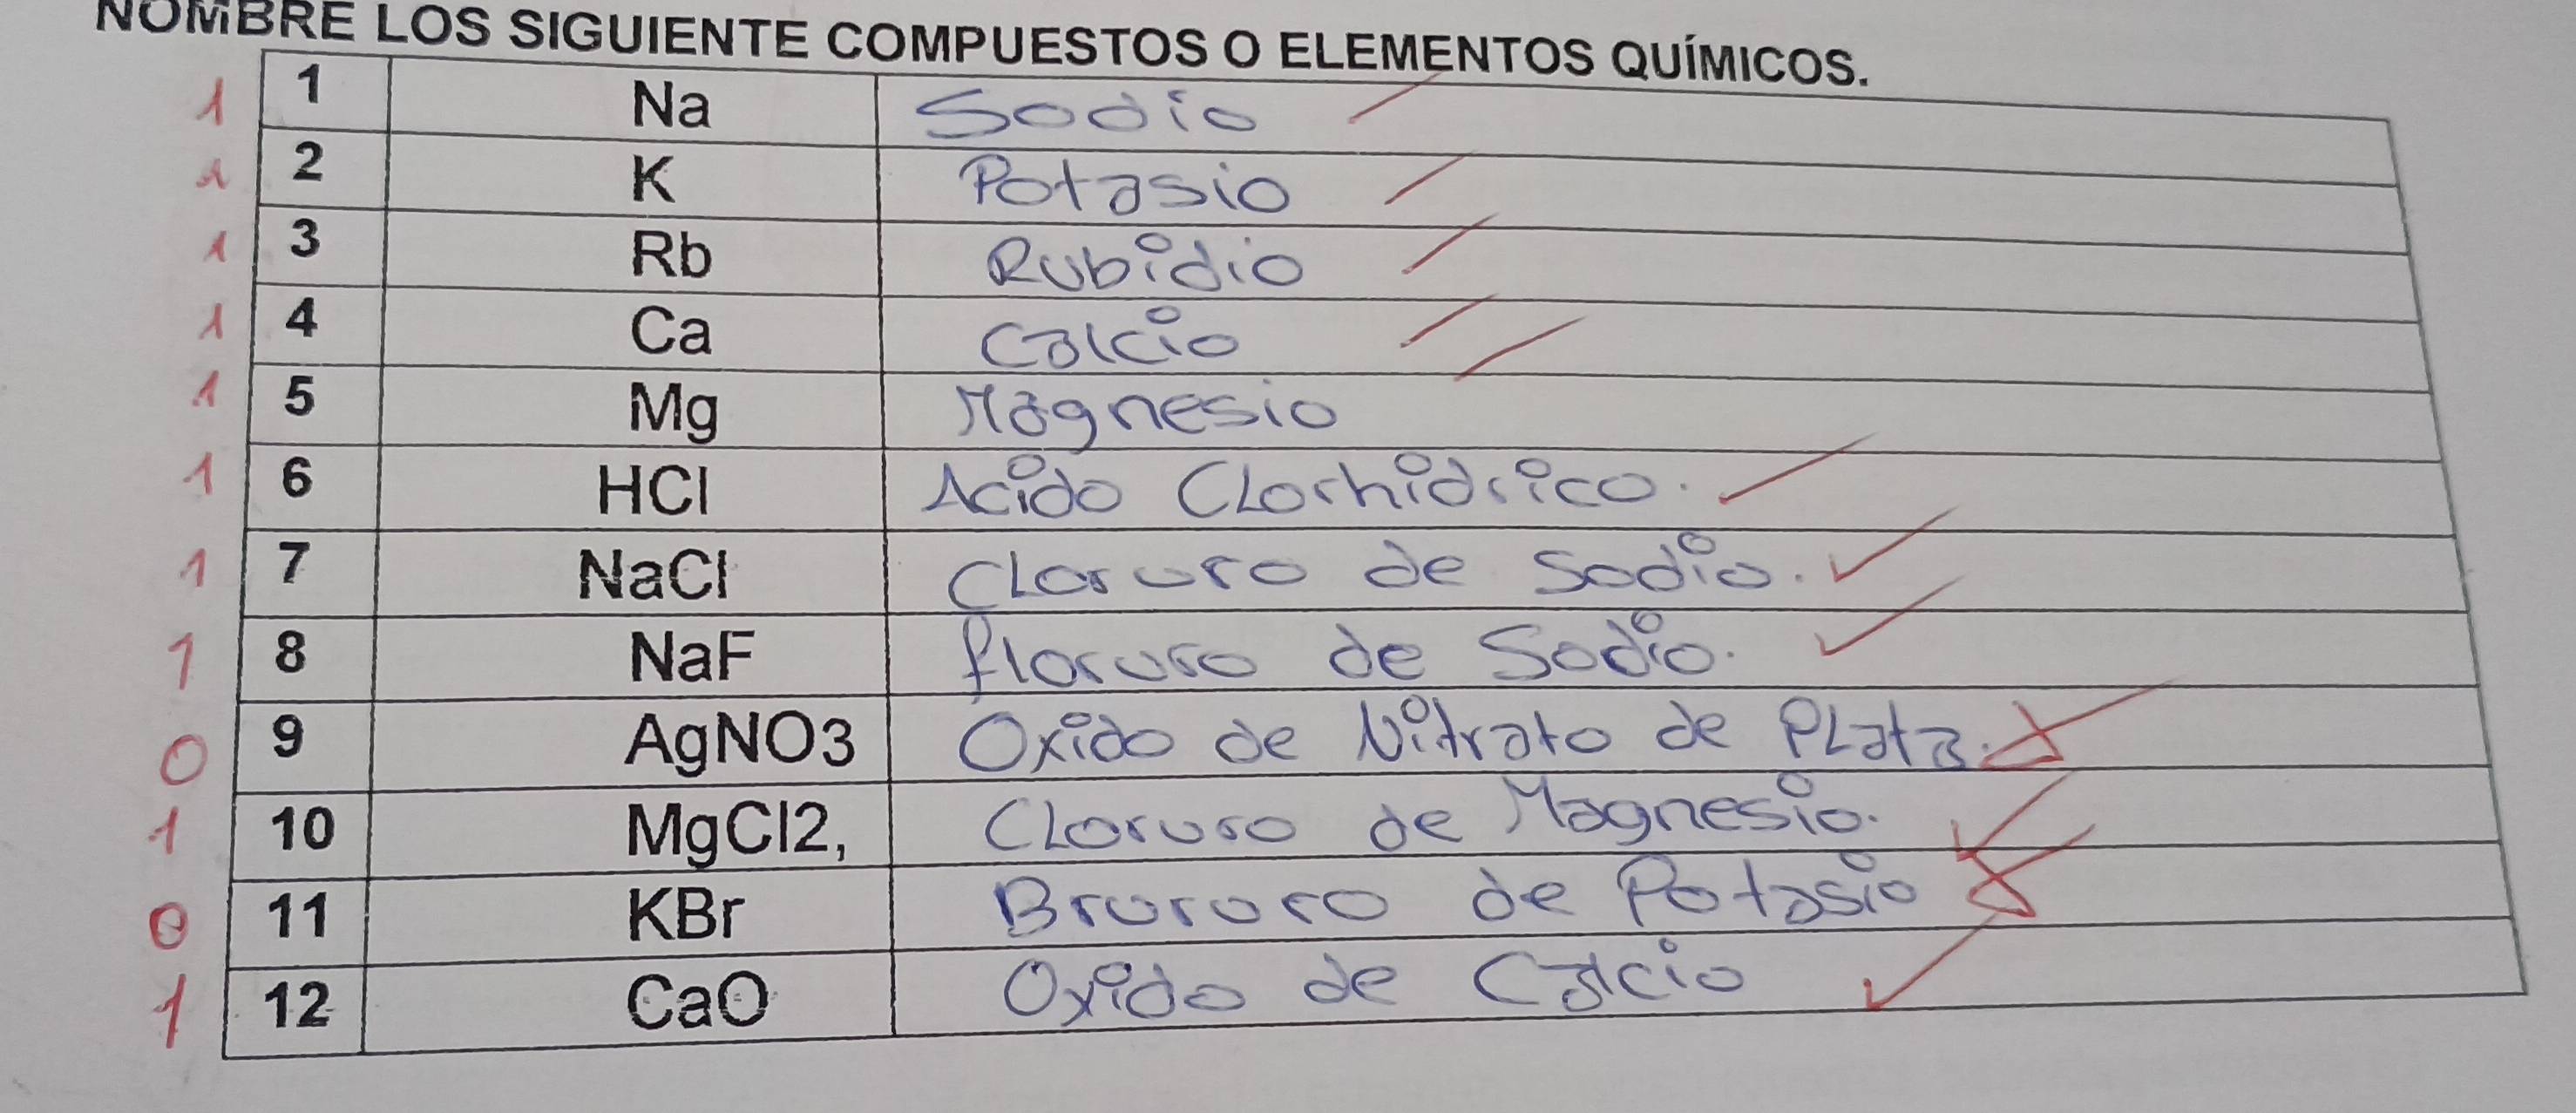 NOMBRE LOS SIGUIENTE COMPUESTOS O ELEMENTOS QUÍMICOS.
1 1 Na Sodio
1 2 K Potasio
1 3 Rb Rubidio
1 4 Ca Calcio
1 5 Mg Magnesio
1 6 HCl Acido Clorhidrico.
1 7 NaCl Cloruro de Sodio.
1 8 NaF floruro de Sodio.
0 9 AgNO3 Oxido de Nitrato de Plata.
1 10 MgCl2, Cloruro de Magnesio.
0 11 KBr Brururo de Potasio
1 12 CaO Oxido de Calcio